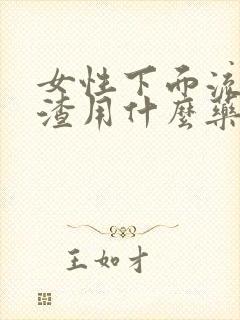 女性下面流
渣用什麼藥
王如才